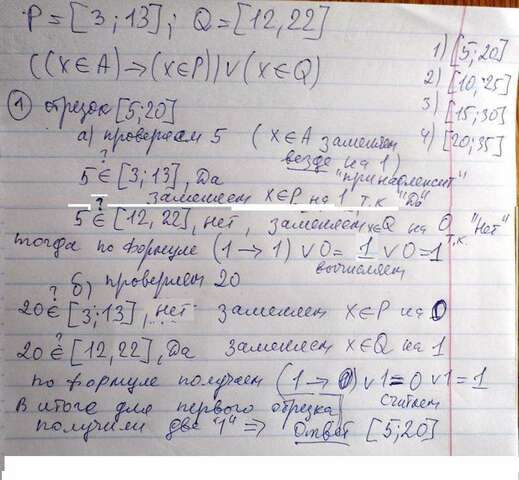 P = [3;13]; Q = [12,22]
((x∈A) → (x∈P)) ∨ (x∈Q)
1) [5;20]
2) [10;25]
3) [15;30]
4) [20;35]
① отрезок [5;20]
а) проверяем 5 (x∈A заменяем
везде на 1)
? "принадлежит"
5 ∈ [3;13], Да
заменяем x∈P на 1 т.к. "Да"
?
5 ∈ [12,22], нет, заменяем x∈Q на 0 т.к. "Нет"
тогда по формуле (1 → 1) ∨ 0 = 1 ∨ 0 = 1
вычисляем
? б) проверяем 20
20 ∈ [3;13], нет заменяем x∈P на 0
?
20 ∈ [12,22], Да заменяем x∈Q на 1
по формуле получаем (1 → 0) ∨ 1 = 0 ∨ 1 = 1
считаем
В итоге для первого отрезка
получили две "1" ⇒ Ответ [5;20]